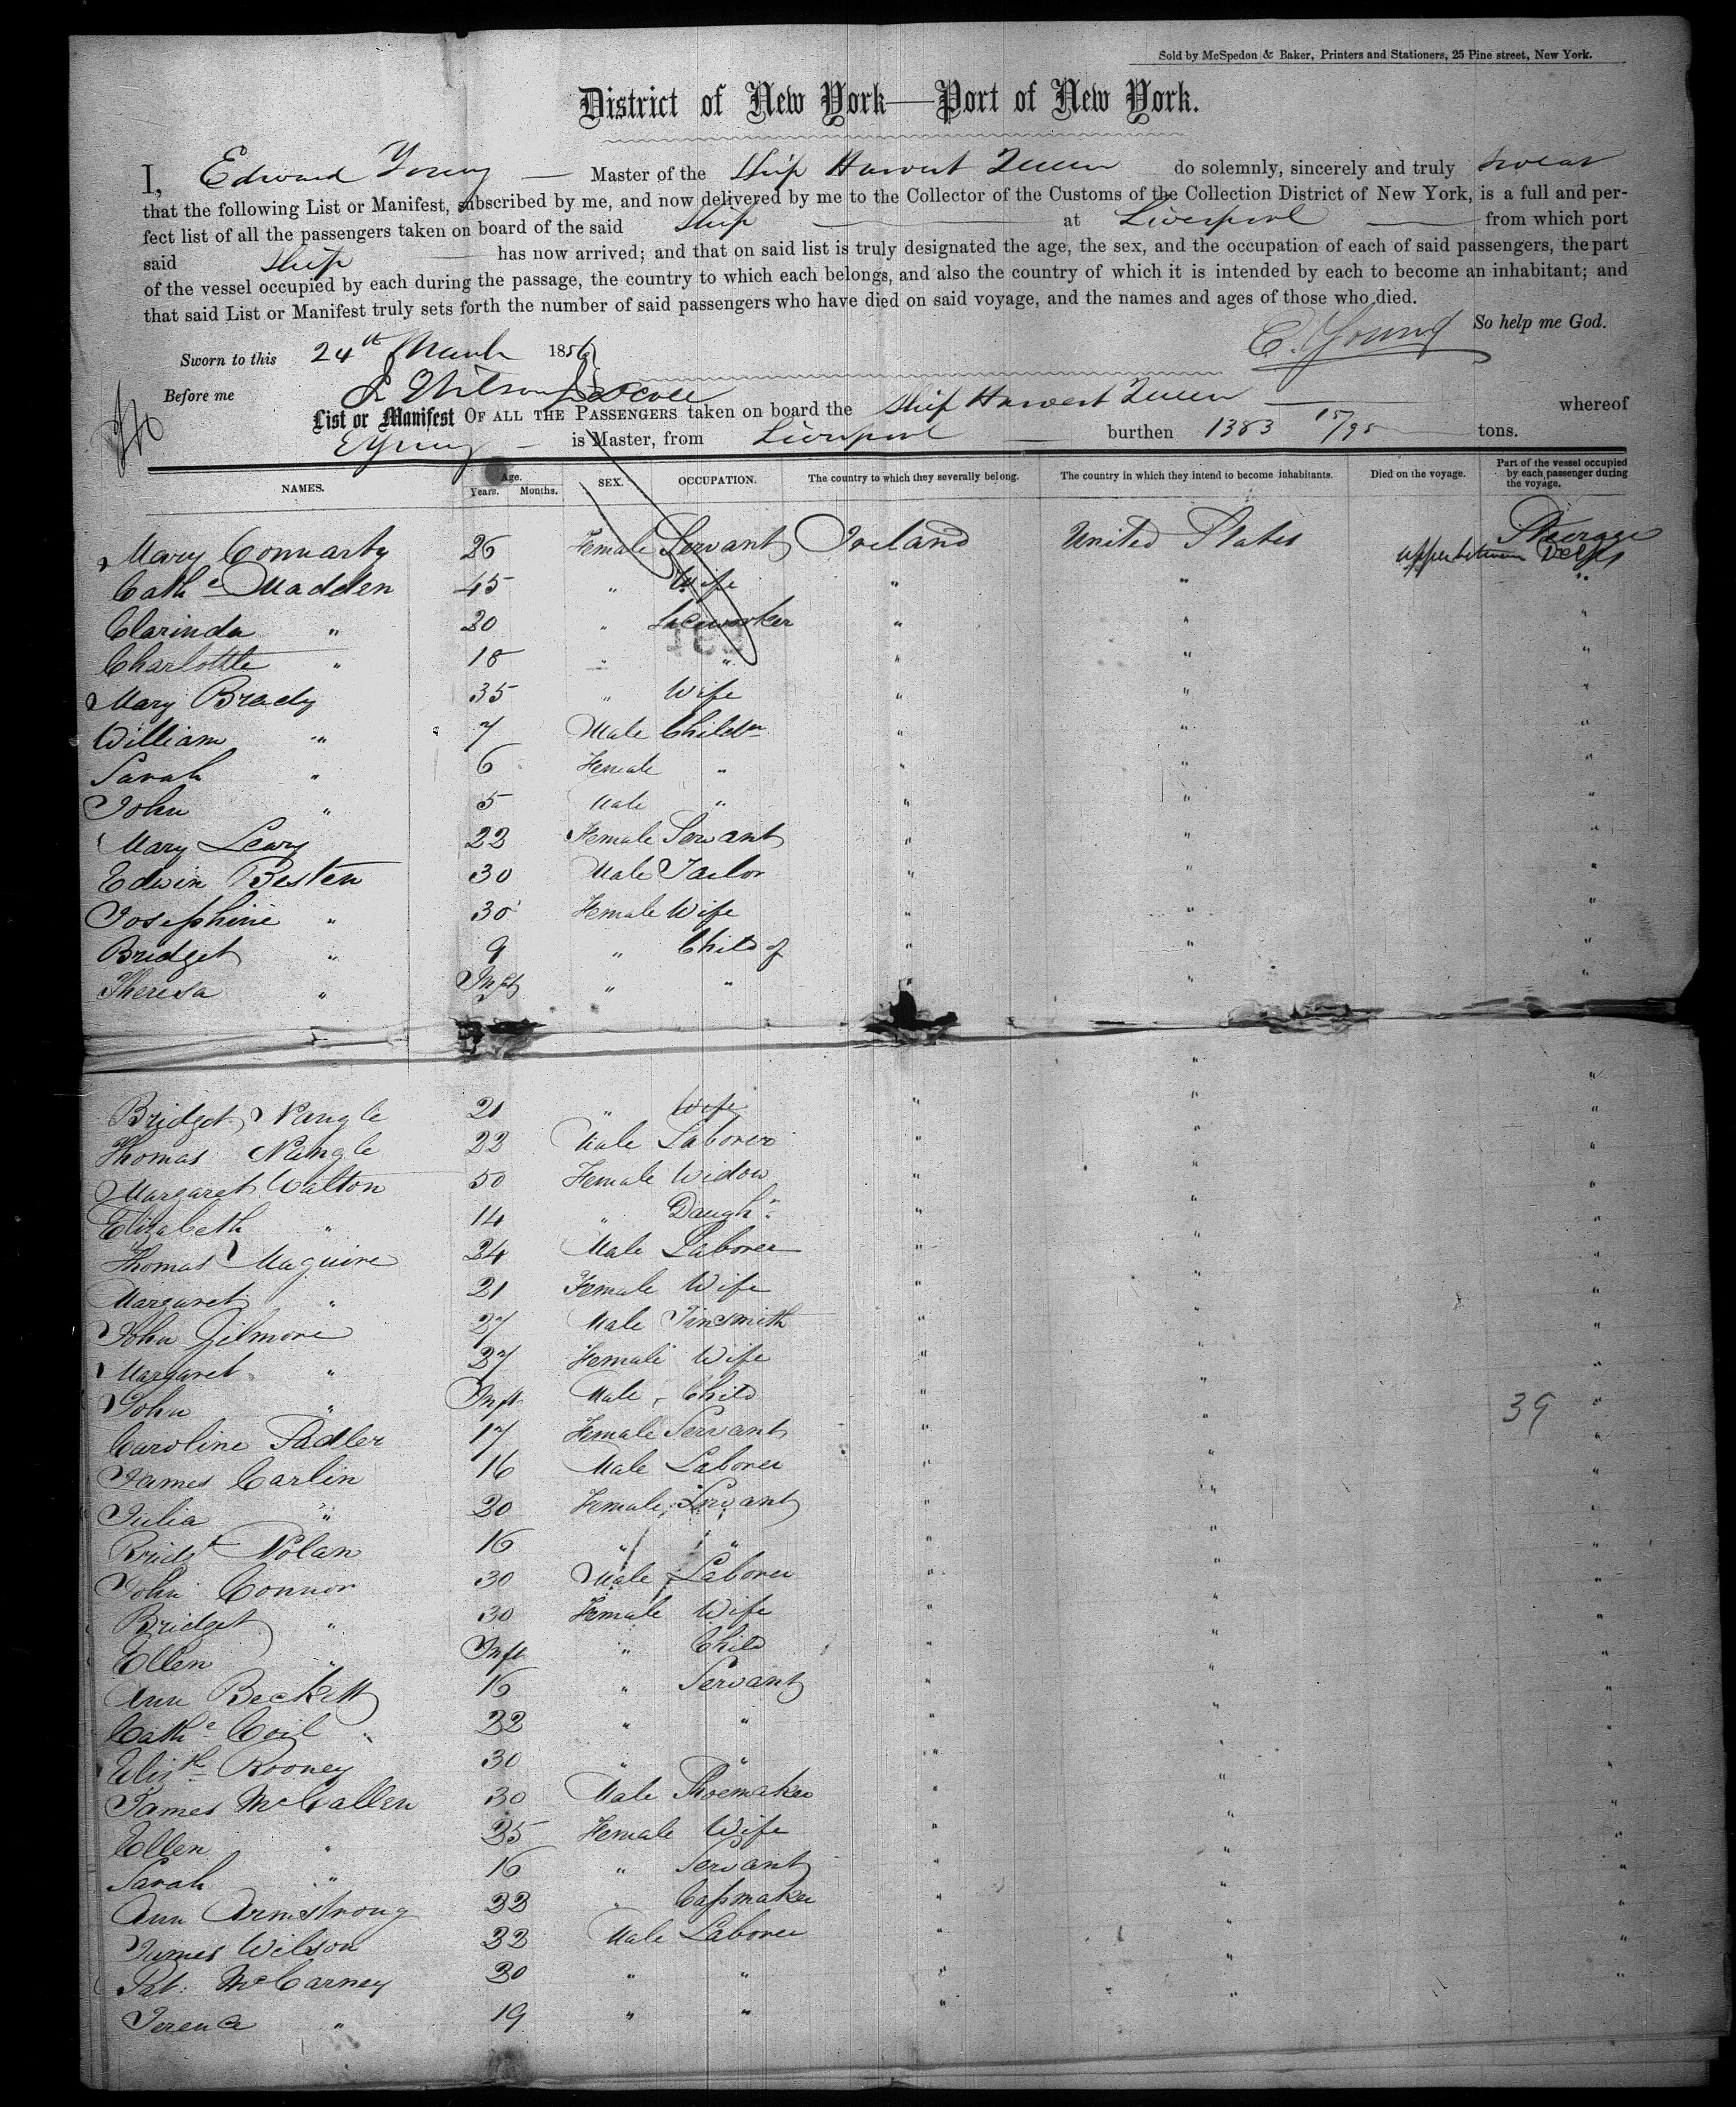 Sold by McSpedon & Baker, Printers and Stationers, 25 Pine street, New York.
District of New York—Port of New York.
I, Edward Young — Master of the Ship Harvest Queen do solemnly, sincerely and truly swear
that the following List or Manifest, subscribed by me, and now delivered by me to the Collector of the Customs of the Collection District of New York, is a full and per-
fect list of all the passengers taken on board of the said Ship — at Liverpool — from which port
said Ship has now arrived; and that on said list is truly designated the age, the sex, and the occupation of each of said passengers, the part
of the vessel occupied by each during the passage, the country to which each belongs, and also the country of which it is intended by each to become an inhabitant; and
that said List or Manifest truly sets forth the number of said passengers who have died on said voyage, and the names and ages of those who died.
So help me God.
E. Young
Sworn to this 24th March 1856
Before me
List or Manifest OF ALL THE PASSENGERS taken on board the Ship Harvest Queen — whereof
E Young — is Master, from Liverpool — burthen 1383 15/95 tons.
NAMES. Age. Years. Months. SEX. OCCUPATION. The country to which they severally belong. The country in which they intend to become inhabitants. Died on the voyage. Part of the vessel occupied by each passenger during the voyage.
Mary 26 Female Servant Ireland United States Steerage
upper between Decks
Cathe Madden 45 " Wife " " "
Clarinda " 20 " Laceworker " " "
Charlotte " 18 " " " " "
Mary Brady 35 " Wife " " "
William " 7 Male Childn " " "
Sarah " 6 Female " " " "
John " 5 Male " " " "
Mary Leary 22 Female Servant " " "
Edwin Besten 30 Male Tailor " " "
Josephine " 30 Female Wife " " "
Bridget " 9 " Child of " " "
Theresa " Inft " " " " "
Bridget Nangle 21 " Wife " " "
Thomas Nangle 22 Male Laborer " " "
Margaret Walton 50 Female Widow " " "
Elizabeth " 14 " Daughr " " "
Thomas Maguire 24 Male Laborer " " "
Margaret " 21 Female Wife " " "
John Gilmore 27 Male Tinsmith " " "
Margaret " 27 Female Wife " " "
John " Inft Male Child " " 39 "
Caroline Sadler 17 Female Servant " " "
James Carlin 16 Male Laborer " " "
Julia " 20 Female Servant " " "
Bridt Nolan 16 " " " " "
John Connor 30 Male Laborer " " "
Bridget " 30 Female Wife " " "
Ellen " Inft " Child " " "
Ann Beckett 16 " Servant " " "
Cathe Coil 22 " " " " "
Elizth Rooney 30 " " " " "
James McCallen 30 Male Shoemaker " " "
Ellen " 25 Female Wife " " "
Sarah " 16 " Servant " " "
Ann Armstrong 22 " Capmaker " " "
James Wilson 22 Male Laborer " " "
Pat. McCarney 20 " " " " "
Terence " 19 " " " "